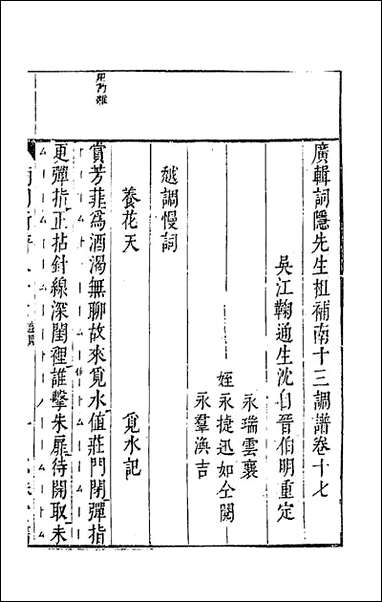 廣輯詞隱先生增補南十三調譜卷十七
吳江鞠通生沈自晉伯明重定
永瑞雲襄
姪永捷迅如仝閱
永羣渙吉
越調慢詞
養花天　覓水記
賞芳菲爲酒渴無聊故來覓水值莊門閉彈指
更彈指正拈針線深閨裡誰擊朱扉待開取未